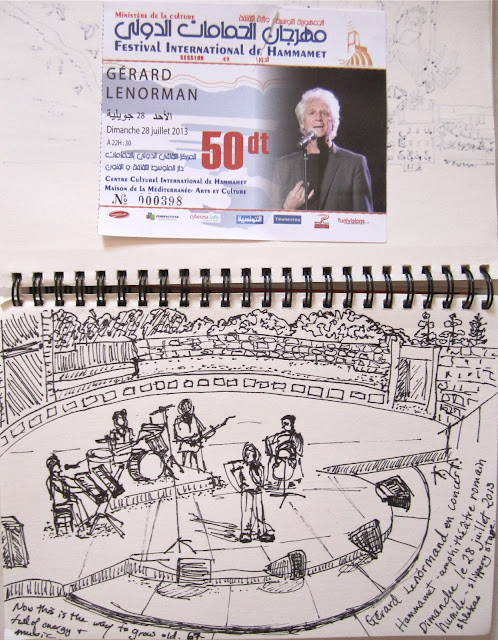 MINISTÈRE DE LA CULTURE الجمهورية التونسية وزارة الثقافة
مهرجان الحمامات الدولي
FESTIVAL INTERNATIONAL DE HAMMAMET
SESSION 49 الدورة
GÉRARD
LENORMAN
الأحد 28 جويلية
Dimanche 28 juillet 2013
À 22H : 30
50dt
المركز الثقافي الدولي بالحمامات
دار المتوسط للثقافة و الفنون
CENTRE CULTUREL INTERNATIONAL DE HAMMAMET
MAISON DE LA MÉDITERRANÉE: ARTS ET CULTURE
№ 000398
التونسية
Gérard Lenormand en concert
Hammamet - amphithéâtre romain
Dimanche le 28 juillet 2013
Now this is the way to grow old. 67
full of energy +
music